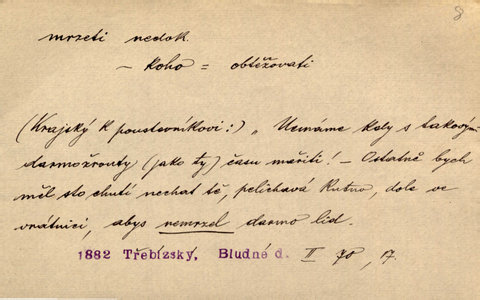 8
mrzeti nedok.
– koho = obtěžovati
(Krajský k poustevníkovi:) „Nemáme kdy s takovými
darmožrouty (jako ty) času mařiti! – Ostatně bych
měl sto chutí nechat tě, pelichavá kutno, dole ve
vrátnici, abys nemrzel darmo lid.
1882 Třebízský, Bludné d. II 70, 17.